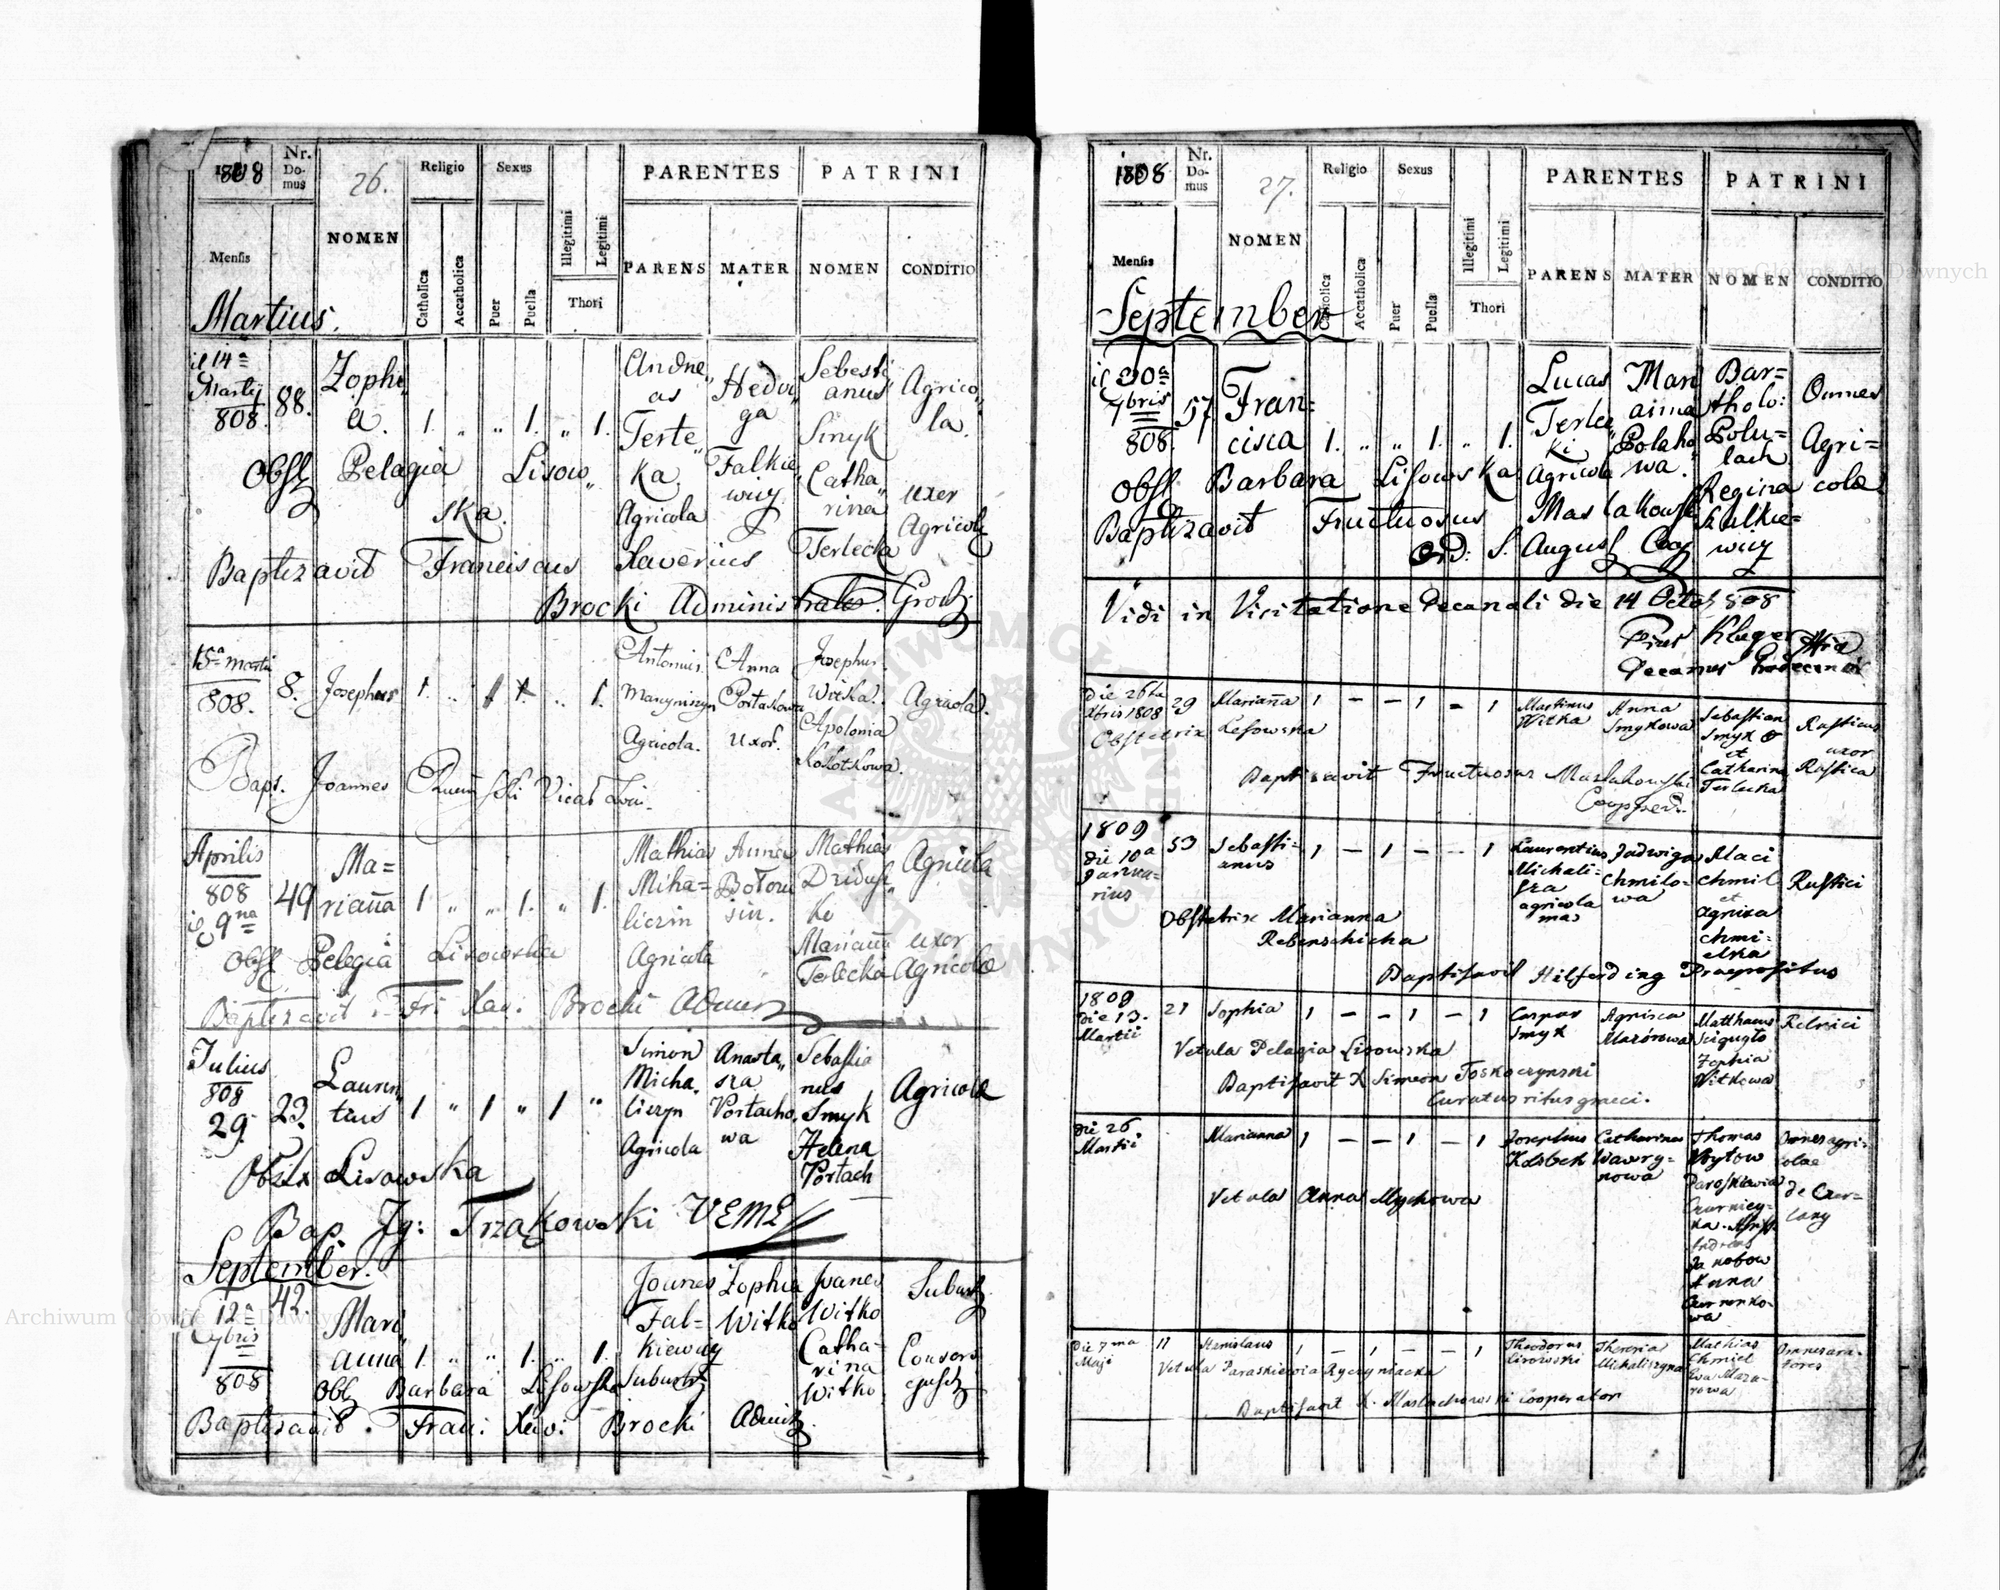 1808
Nr. Domus
26.
NOMEN
Religio
Sexus
PARENTES
PATRINI
Mensis
Catholica
Accatholica
Puer
Puella
Illegitimi
Legitimi
Thori
PARENS
MATER
NOMEN
CONDITIO
Martius.
14a Martij 808. 88. Zophi„ a. 1. „ „ 1. „ 1.
Andre„ as Terte„ ka. Agricola
Hedvi„ ga Falkie„ wicz
Sebesti„ anus Smyk Catha„ rina Terlecka
Agrico„ la. uxor Agricolę
Obst Pelagia Lisow„ ska.
Baptizavit Franciscus Xaverius
Brocki Administrator. Grod:
15a Martii 808. 8. Josephus 1. 1.
Antonius. Agricola.
Anna uxor.
Josephus. Apolonia
Agricola.
Bapt. Joannes
Aprilis 808 9na 49 Ma= rianna 1 „ „ 1. „ 1.
Mathias Miha= liczin Agricola
Anna
Mathias Marianna Terlecka
Agricola uxor Agricolæ
Obst Pelegia Lisowska
Baptizavit Fr: Xav. Brocki Admin
Julius 808 29. 23. Lauren„ tius 1 „ 1 „ 1 „
Simon Micha„ liczyn Agricola
Anasta„ sza Portacho„ wa
Sebastia nus Smyk Helena Portach
Agricolæ
Obstx Lisowska
Bap. Jg: Trzakowski VEME
September.
12a 7bris 808 42. Mari„ anna 1. „ „ 1. „ 1.
Joanes Fal= kiewicz
Zophia Witko
Joanes Witko Catha= rina Witko
Obst Barbara Lisowska
Baptizavit. Fran: Xav: Brocki Admin
1808
Nr. Domus
27.
NOMEN
Religio
Sexus
PARENTES
PATRINI
Mensis
Catholica
Accatholica
Puer
Puella
Illegitimi
Legitimi
Thori
PARENS
MATER
NOMEN
CONDITIO
September
30a 7bris 808. 57 Fran= cisca 1. „ „ 1. „ 1.
Lucas Terlec ki Agricola
Mari anna Polaho„ wa.
Bar= tholo: Polu= lach Regina Falkie= wicz
Omnes Agri= colæ
Obst Barbara Lisowska
Baptizavit Fructuosus Maslakowski
Ord: S. August Coop
Vidi in Visitatione Decanali die 14 Octob 808
Pius Kluger
Decanus
Die 26ta Xbris 1808 29 Marianna 1 — — 1 — 1
Martinus Witka
Anna Smykowa
Sebastian Smyk et Catharina Terlecka
Rusticus uxor Rustica
Obstetrix Lesowska
Baptisavit Fructuosus Maslakowski
Cooper.
1809 die 10a Janua= rius 53 Sebasti= anus 1 — 1 — — 1
Laurentius Michali= sza agricola
Jadwiga Chmilo= wa
Maci Chmil et Agnixa Chmi= elka
Rustici
Obstetrix Marianna
Rebenschicha
Baptisavit Hilferding Praepositus
1809 die 13. Martii 21 Sophia 1 — — 1 — 1
Caspar Smyk
Agnisca Mazórowa
Matthaeus Zophia Witkowa
Vetula Pelagia Lisowska
Baptisavit X Simeon Toskoczynski
Curatus ritus graeci.
die 26 Martii Marianna 1 — — 1 — 1
Josephus Kolbek
Catharina Wawry= nowa
Thomas Woytow Paraskiewia
Andreas Janobow Anna
Omnes agri= colae de Czer= lany
Vetula Anna Mychowa
Die 7ma Maji 11 Stanislaus 1 — 1 — — 1
Theodorus Lisowski
Theresia Michaliszyna
Mathias Chmiel Eva Mazu= rowa
Omnes ara= tores
Vetula Paraskiewia Ryczyniacka
Baptisavit X. Maslachowski cooperator
Archiwum Główne Akt Dawnych
Archiwum Główne Akt Dawnych